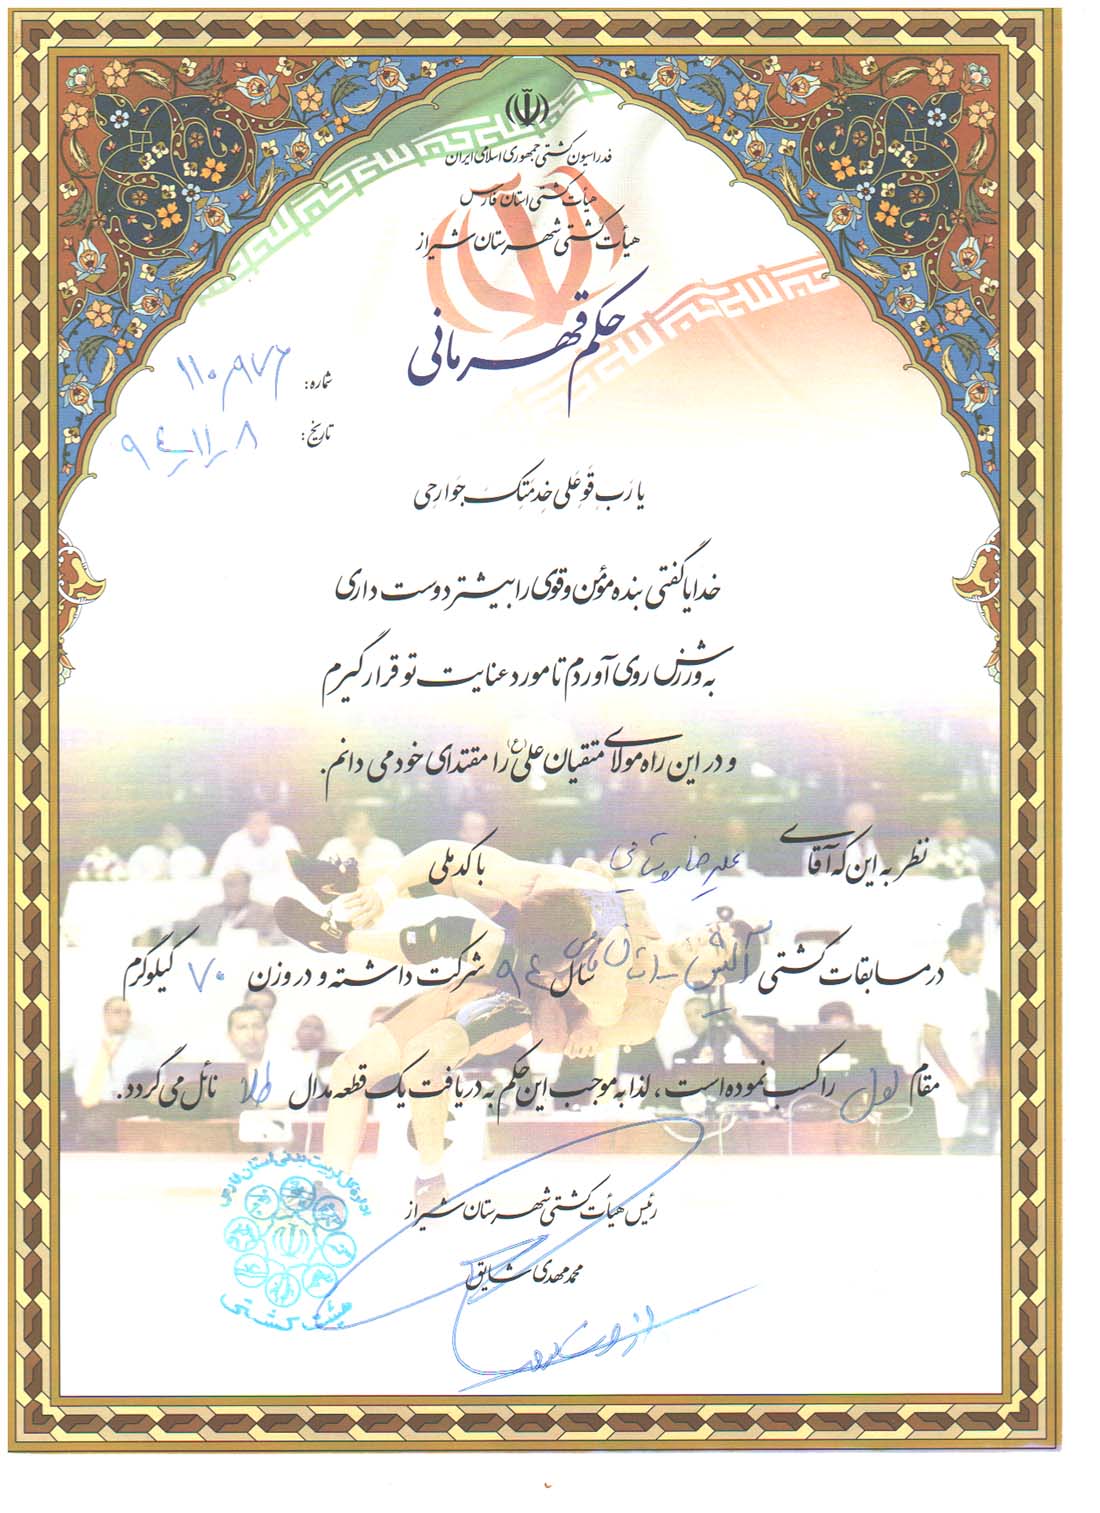 فدراسیون کشتی جمهوری اسلامی ایران
هیأت کشتی استان فارس
هیأت کشتی شهرستان شیراز
حکم قهرمانی
شماره:
تاریخ: ۹۴/۱۱/۸
یا رَبِ قَوِّ عَلی خِدمَتِکَ جَوارِحِی
خدایا گفتی بنده مؤمن و قوی را بیشتر دوست داری
به ورزش روی آوردم تا مورد عنایت تو قرار گیرم
و در این راه مولای متقیان علی (ع) را مقتدای خود می دانم.
نظر به این که آقای علیرضا با کد ملی
در مسابقات کشتی آلیش استان فارس سال ۹۴ شرکت داشته و در وزن ۷۰ کیلوگرم
مقام اول را کسب نموده است ، لذا به موجب این حکم به دریافت یک قطعه مدال طلا نائل می گردد.
رئیس هیأت کشتی شهرستان شیراز
محمد مهدی شایق
اداره کل تربیت بدنی استان فارس
هیئت کشتی